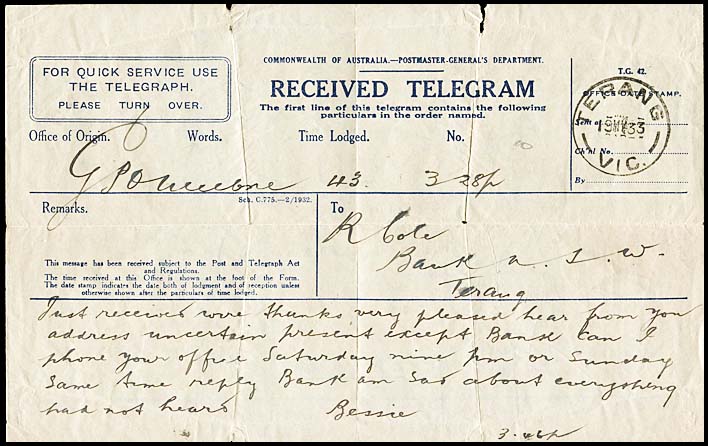 COMMONWEALTH OF AUSTRALIA.—POSTMASTER-GENERAL'S DEPARTMENT.
FOR QUICK SERVICE USE
THE TELEGRAPH.
PLEASE TURN OVER.
RECEIVED TELEGRAM
The first line of this telegram contains the following
particulars in the order named.
T.G. 42.
OFFICE DATE STAMP.
TERANG
33
VIC.
Sent
No.
By
Office of Origin. Words. Time Lodged. No.
GPO Melbne 43. 3 28p
Sch. C.775.—2/1932.
Remarks.
To
R Cole
Bank N. S. W.
Terang
This message has been received subject to the Post and Telegraph Act
and Regulations.
The time received at this Office is shown at the foot of the Form.
The date stamp indicates the date both of lodgment and of reception unless
otherwise shown after the particulars of time lodged.
Just received wire thanks very pleased hear from you
address uncertain present except Bank can I
phone your office Saturday nine pm or Sunday
same time reply Bank am sad about everything
had not heard Bessie